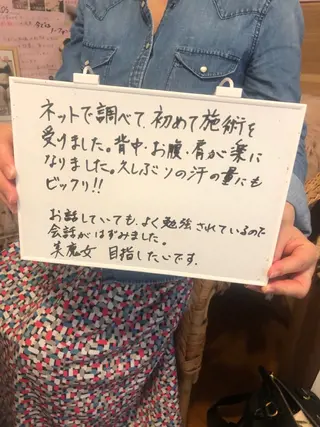 ネットで調べて、初めて施術を
受けました。背中・お腹・肩が楽に
なりました。久しぶりの汗の量にも
ビックリ!!
お話していても、よく勉強されているので
会話がはずみました。
美魔女 目指したいです。